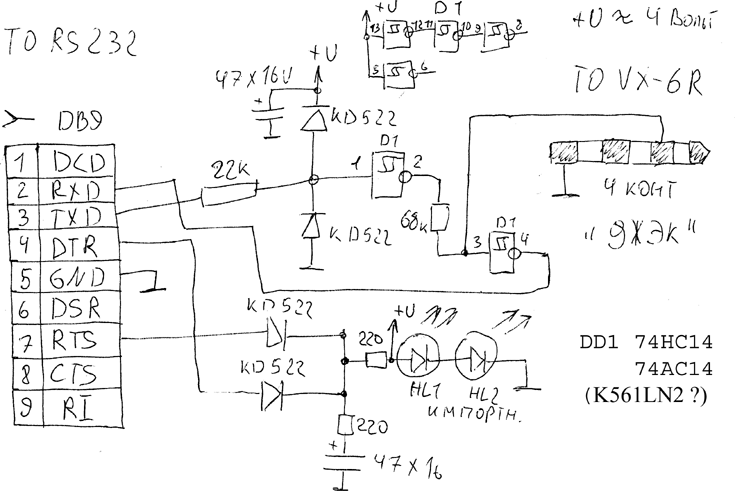 +U D1
13 12 11 10 9 8
5 6
+U ≈ 4 Вольт
TO RS232
TO VX-6R
+U
47×16V
KD522
DB9
D1
1 DCD
2 RXD
3 TXD
4 DTR
5 GND
6 DSR
7 RTS
8 CTS
9 RI
22K
1 2
KD522
68к
D1
3 4
4 КОНТ
"ЭХЭК"
KD522
+U
KD522
220
HL1 HL2
ИМПОРТН.
220
+
47×16
DD1 74HC14
74AC14
(K561LN2 ?)